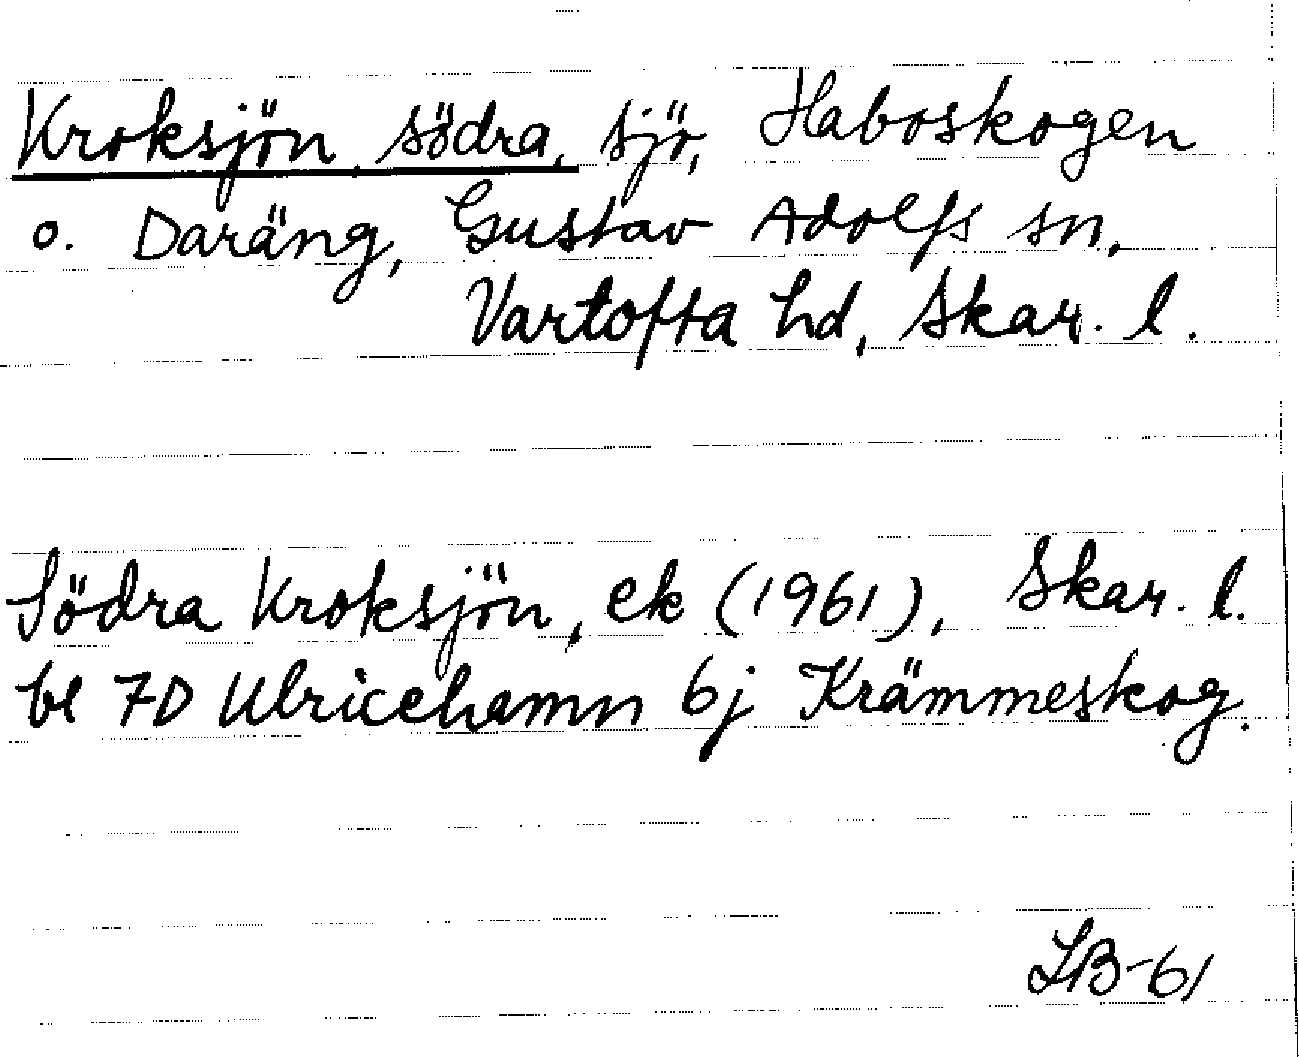 Kroksjön, södra, sjö, Haboskogen
o. Daräng, Gustav Adolfs sn,
Vartofta hd, Skar. l.
Södra Kroksjön, ek (1961), Skar. l.
bl 7D Ulricehamn 6j Krämmeskog.
LB-61